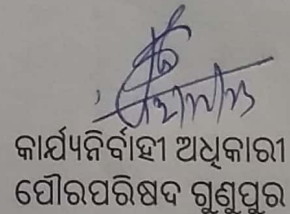 କାର୍ଯ୍ୟନିର୍ବାହୀ ଅଧିକାରୀ
ପୌରପରିଷଦ ଗୁଣୁପୁର